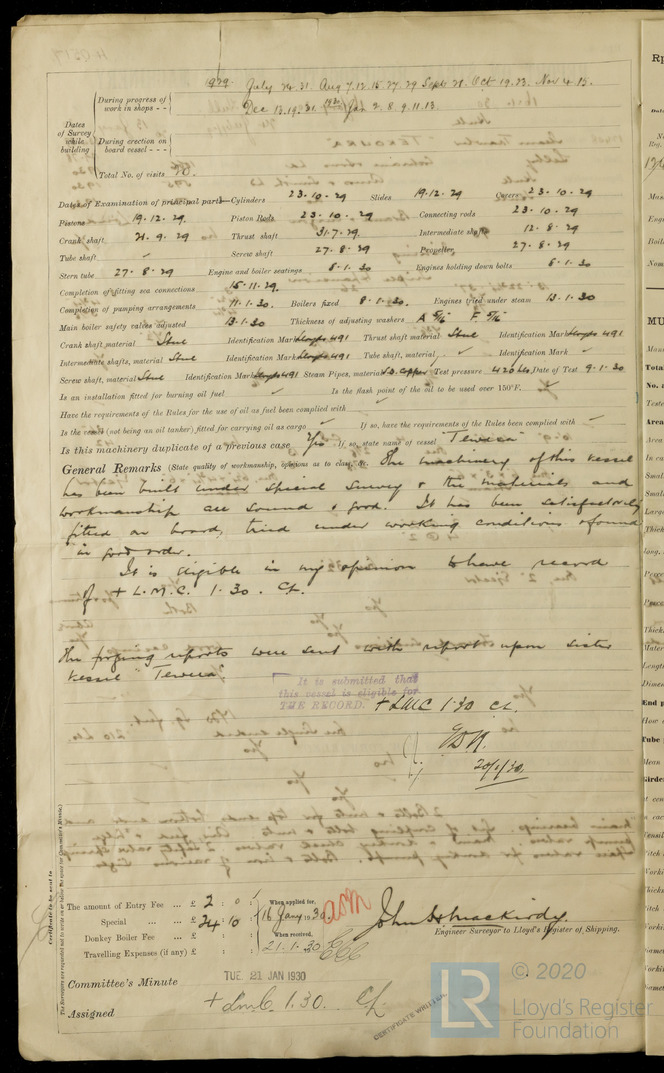 1929. July 24. 31. Aug 7. 12. 15. 27. 29 Sept 21. Oct. 19. 23. Nov 4. 15.
During progress of work in shops - -
Dec 13. 19. 31. Jan 2. 8. 9. 11. 13.
Dates of Survey while building
During erection on board vessel - - -
Total No. of visits 20.
Dates of Examination of principal parts—Cylinders 23. 10. 29 Slides 19. 12. 29 Covers 23. 10. 29
Pistons 19. 12. 29. Piston Rods 23. 10. 29 Connecting rods 23. 10. 29
Crank shaft 21. 9. 29 Thrust shaft 31. 7. 29. Intermediate shafts 12. 8. 29
Tube shaft ✓ Screw shaft 27. 8. 29 Propeller 27. 8. 29
Stern tube 27. 8. 29 Engine and boiler seatings 6. 1. 30 Engines holding down bolts 6. 1. 30
Completion of fitting sea connections 15. 11. 29.
Completion of pumping arrangements 11. 1. 30. Boilers fixed 8. 1. 30. Engines tried under steam 13. 1. 30
Main boiler safety valves adjusted 13. 1. 30 Thickness of adjusting washers A 5/16 F 5/16
Crank shaft material Steel Identification Mark Lloyds 491 Thrust shaft material Steel Identification Mark Lloyds 491
Intermediate shafts, material Steel Identification Marks Lloyds 491 Tube shaft, material ✓ Identification Mark ✓
Screw shaft, material Steel Identification Mark Lloyds 491 Steam Pipes, material S.D. Copper Test pressure 420 lbs Date of Test 9. 1. 30
Is an installation fitted for burning oil fuel ✓ Is the flash point of the oil to be used over 150°F. ✓
Have the requirements of the Rules for the use of oil as fuel been complied with ✓
Is the vessel (not being an oil tanker) fitted for carrying oil as cargo ✓ If so, have the requirements of the Rules been complied with ✓
Is this machinery duplicate of a previous case Yes If so, state name of vessel "Terwera"
General Remarks (State quality of workmanship, opinions as to class, &c. The machinery of this vessel
has been built under Special Survey & the materials and
workmanship are sound & good. It has been satisfactorily
fitted on board, tried under working conditions & found
in good order.
It is eligible in my opinion to have record
of + L.M.C. 1. 30. CL.
The forging reports were sent with report upon sister
vessel "Terwera"
It is submitted that
this vessel is eligible for
THE RECORD. + LMC 1.30 CL.
20/1/30.
Certificate to be sent to
(The Surveyors are requested not to write on or below the space for Committee's Minute.)
The amount of Entry Fee ... £ 2 : 0 :
Special ... ... £ 24 : 10 :
Donkey Boiler Fee ... £ : :
Travelling Expenses (if any) £ : :
When applied for,
16 Jany 1930.
When received,
21. 1. 30
John D. Mackirdy.
Engineer Surveyor to Lloyd's Register of Shipping.
Committee's Minute TUE. 21 JAN 1930
Assigned + LMC 1.30. CL
CERTIFICATE WRITTEN
© 2020
LR Lloyd's Register
Foundation